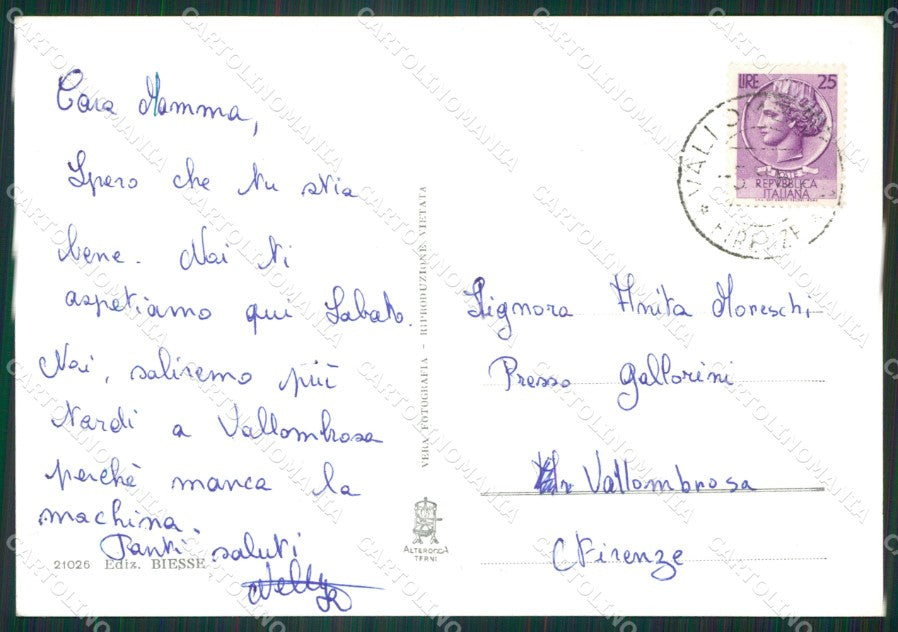 Cara Mamma,
Spero che tu stia
bene. Noi ti
aspetiamo qui Sabato.
Noi, saliremo più
tardi a Vallombrosa
perchè manca la
machina.
Tanti saluti
Nelly
21026 Ediz. BIESSE
VERA FOTOGRAFIA - RIPRODUZIONE VIETATA
ALTEROCCA
TERNI
LIRE 25
REPVBBLICA
ITALIANA
FIRENZE
Signora Anita Moreschi
Presso Gallorini
Vallombrosa
(Firenze
CARTOLINOMANIA